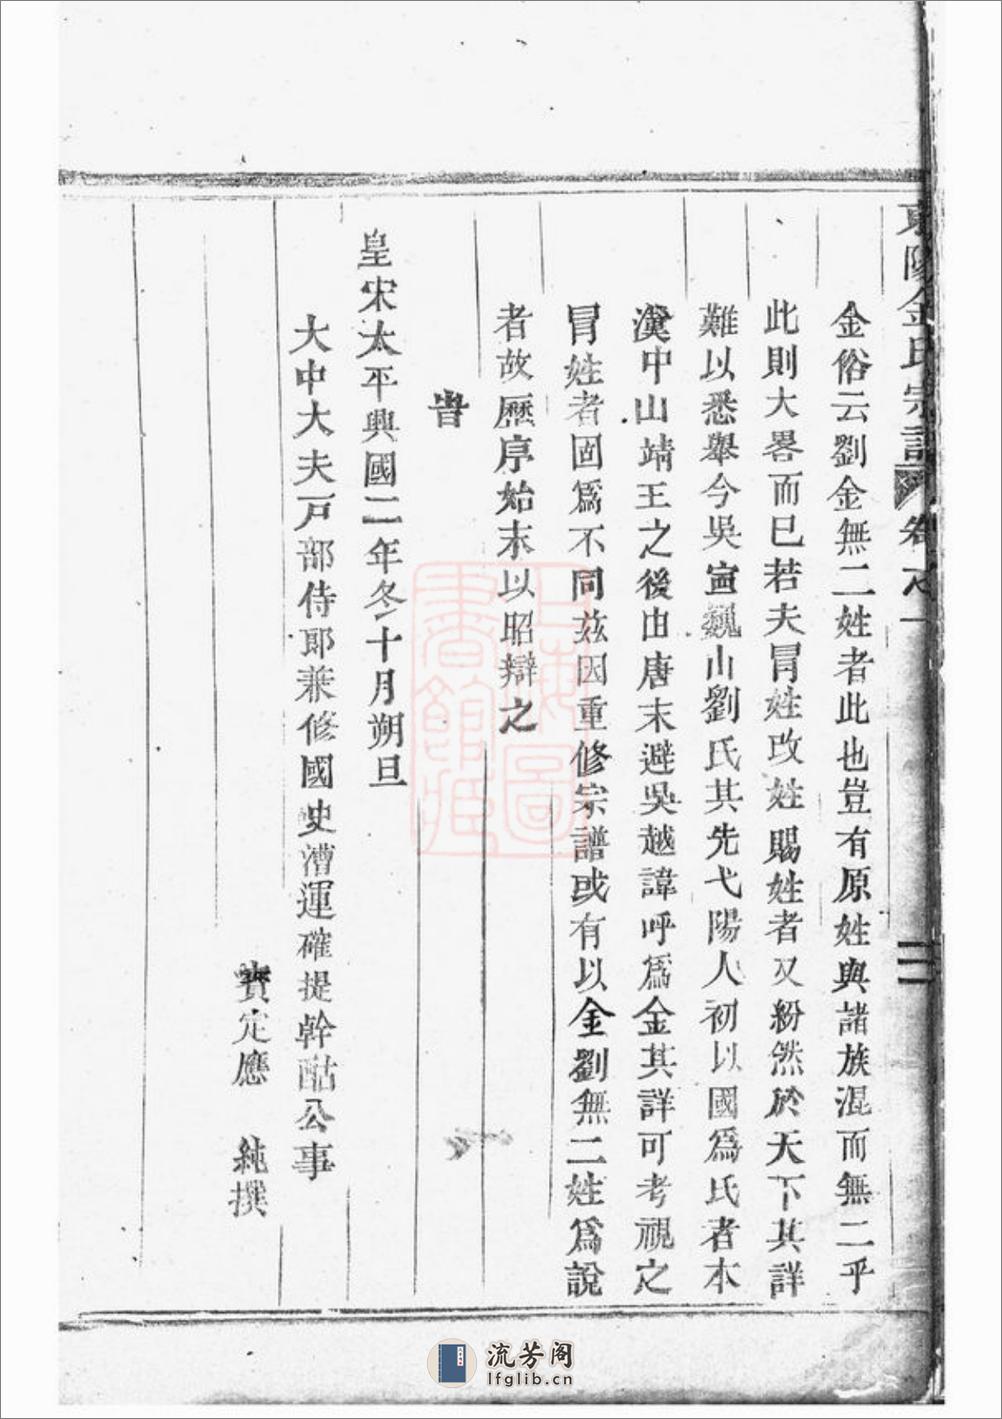 東陽金氏宗譜 卷之一 二
金俗云劉金無二姓者此也豈有原姓與諸族混而無二乎
此則大畧而已若夫冐姓改姓賜姓者又紛然於天下其詳
難以悉舉今吳寗巍山劉氏其先弋陽人初以國爲氏者本
漢中山靖王之後由唐末避吳越諱呼爲金其詳可考視之
冐姓者固爲不同茲因重修宗譜或有以金劉無二姓爲說
者故歷序始末以昭辯之
旹
皇宋太平興國二年冬十月朔旦
大中大夫戸部侍郎兼修國史漕運確提幹酤公事
寶定應 純撰
上海圖書館藏
流芳阁
lfglib.cn